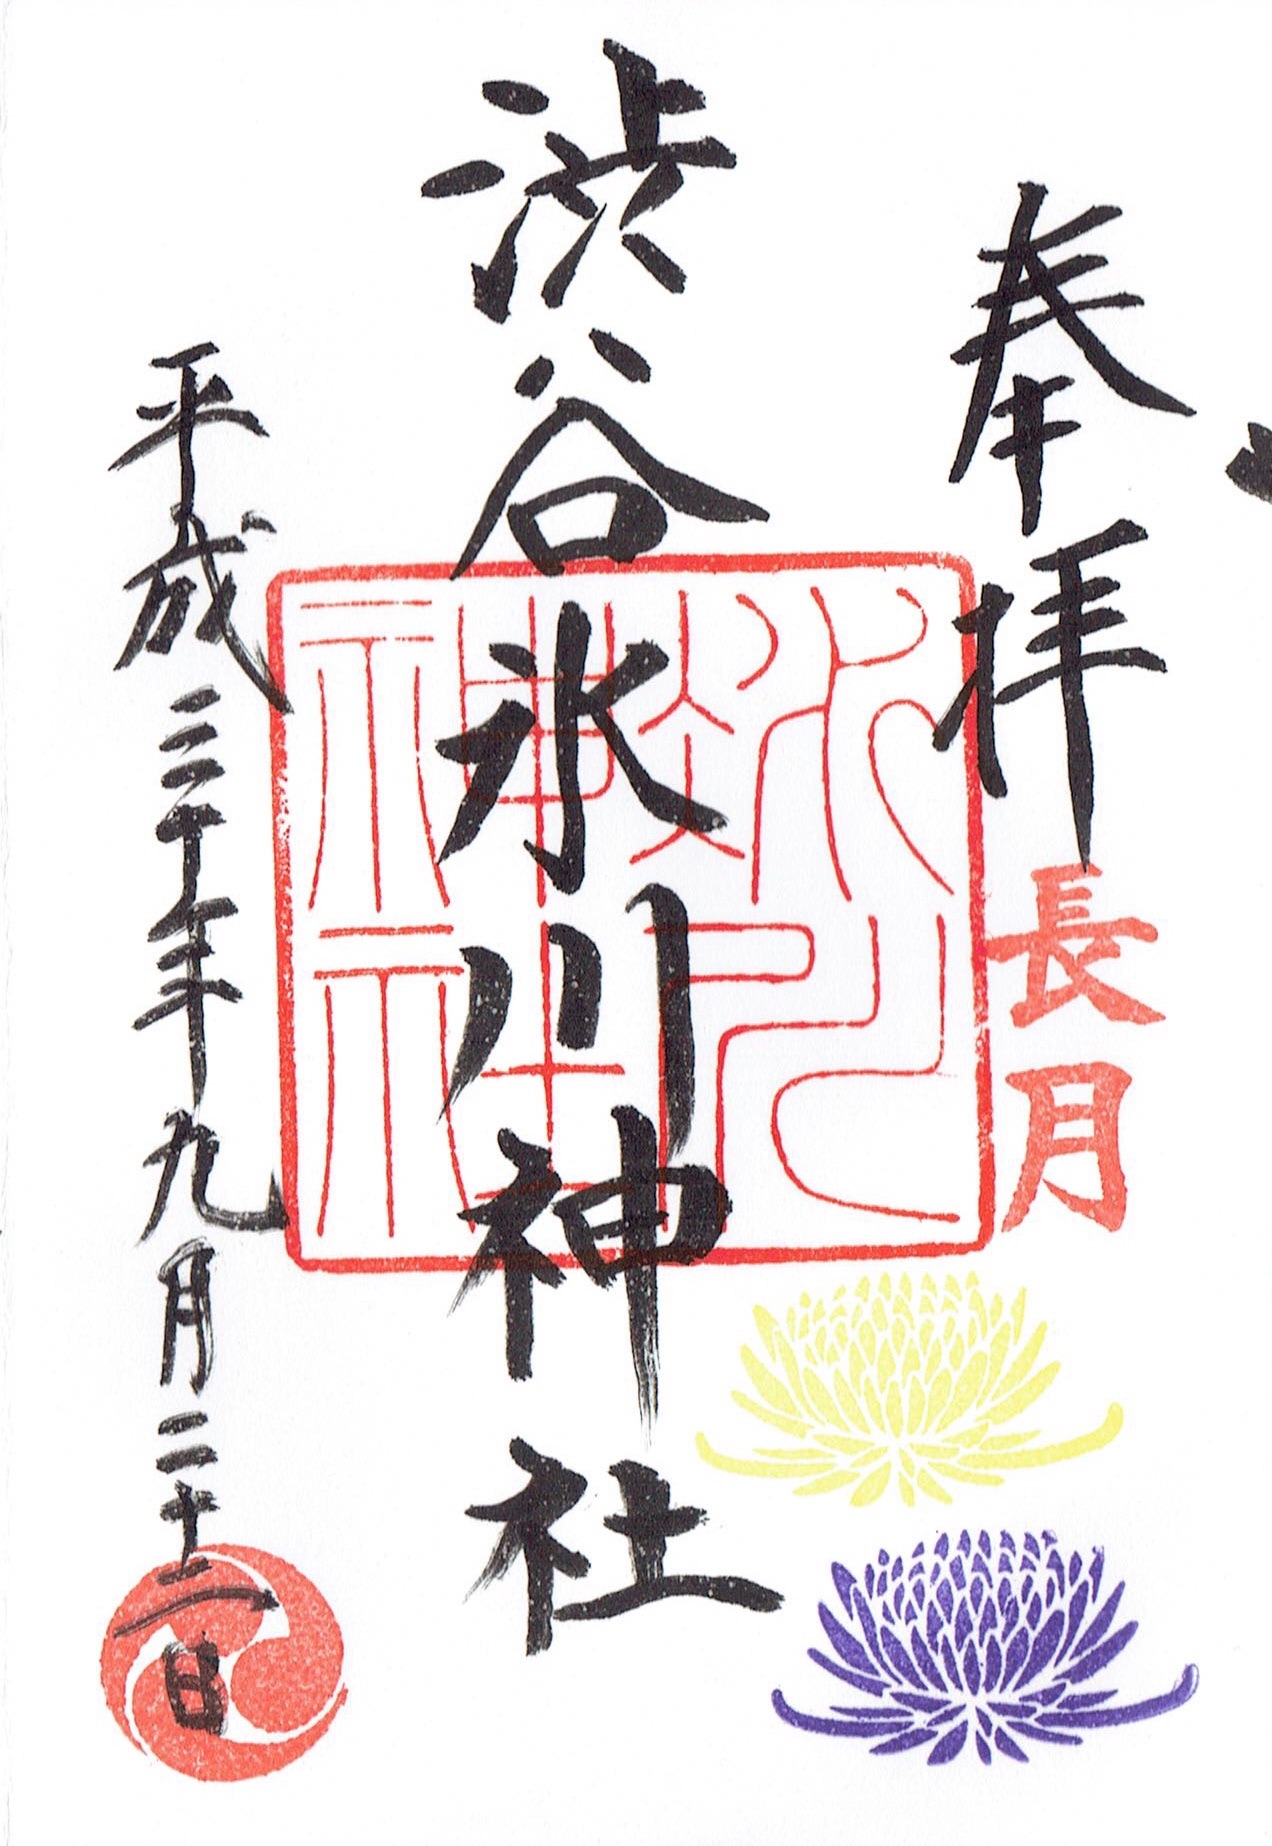 奉拝
長月
渋谷氷川神社
冰川
神社
平成三十年九月二十二日